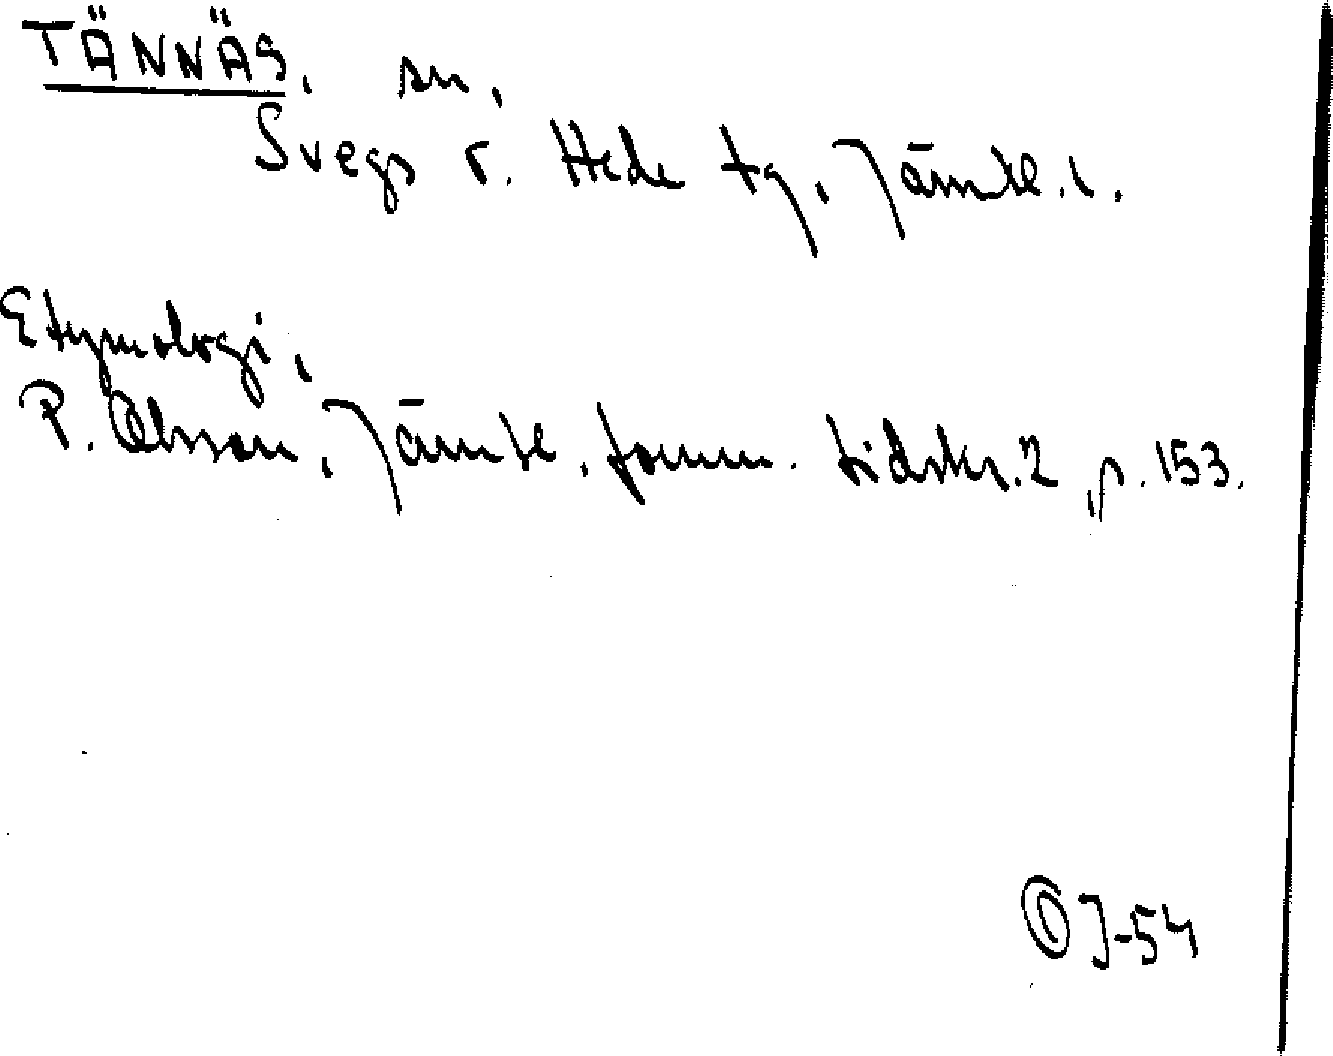 TÄNNÄS, sn,
Svegs v. Hede tg, Jämtl. l.
Etymologi,
P. Olsson, Jämtl. fornm. tidskr. 2, p. 153.
OJ-54